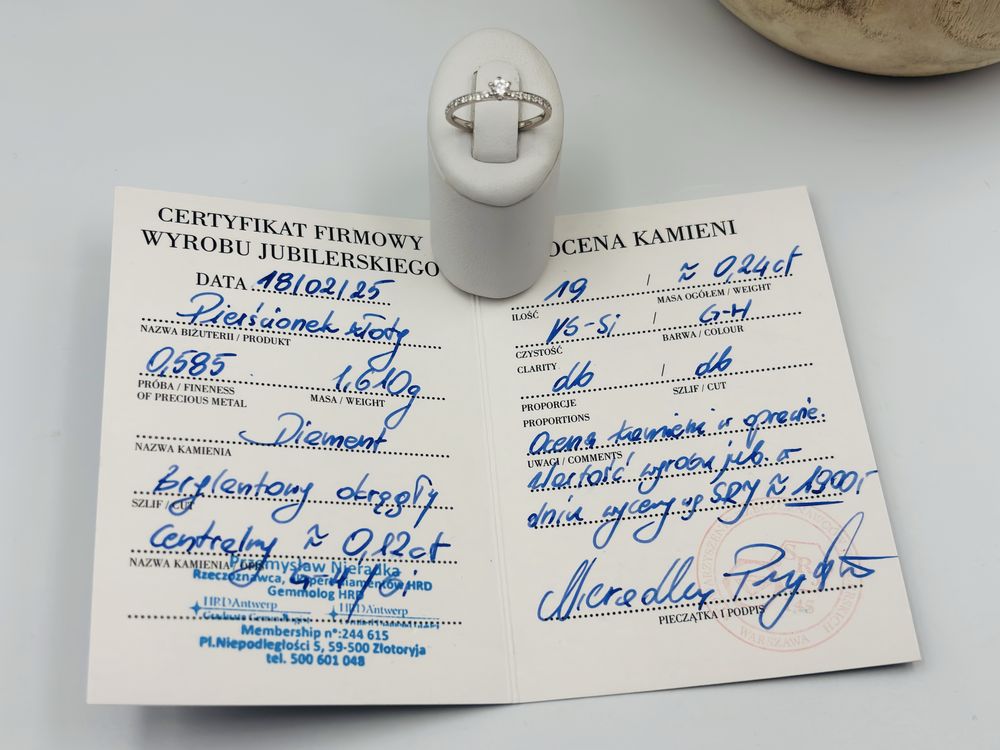 CERTYFIKAT FIRMOWY
WYROBU JUBILERSKIEGO
DATA 18/02/25
Pierścionek złoty
NAZWA BIŻUTERII / PRODUKT
0,585 1,610g
PRÓBA / FINENESS
OF PRECIOUS METAL
MASA / WEIGHT
Diament
NAZWA KAMIENIA
Brylantowy okrągły
SZLIF / CUT
Centralny ≈ 0,12ct
NAZWA KAMIENIA /
G-H / Si
Przemysław Nieradka
Rzeczoznawca, ekspert diamentów HRD
Gemmolog HRD
HRD Antwerp HRD Antwerp
Membership n°:244 615
Pl.Niepodległości 5, 59-500 Złotoryja
tel. 500 601 048
OCENA KAMIENI
19 / ≈ 0,24ct
ILOŚĆ
MASA OGÓŁEM / WEIGHT
VS-Si / G-H
CZYSTOŚĆ
CLARITY
BARWA / COLOUR
db / db
PROPORCJE
PROPORTIONS
SZLIF / CUT
Ocena kamieni w oprawie.
UWAGI / COMMENTS
Wartość wyrobu jub. w
dniu wyceny wg SRJ ≈ 1900
PIECZĄTKA I PODPIS
WARSZAWA